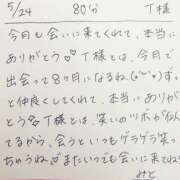 5/24 80分 T様
今月も会いに来てくれて、本当に
ありがとう♡T様とは、今月で
出会って8ヶ月になるね(⌒▽⌒)ずっ
と仲良くしてくれて、本当にありが
とう☆T様とは、笑いのツボが似
てるから、会うといつもゲラゲラ笑っ
ちゃうね♡またいつでも会いに来てね♡
みと